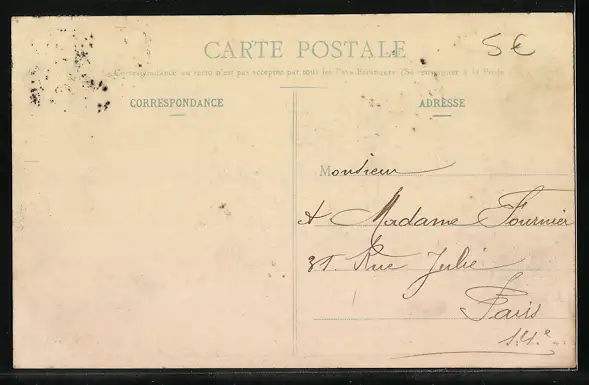 CARTE POSTALE
5€
Correspondance au recto n'est pas acceptée par tous les Pays Étrangers (Se renseigner à la Poste
CORRESPONDANCE
ADRESSE
Monsieur
& Madame Fournier
31 Rue Julie
Paris
14e